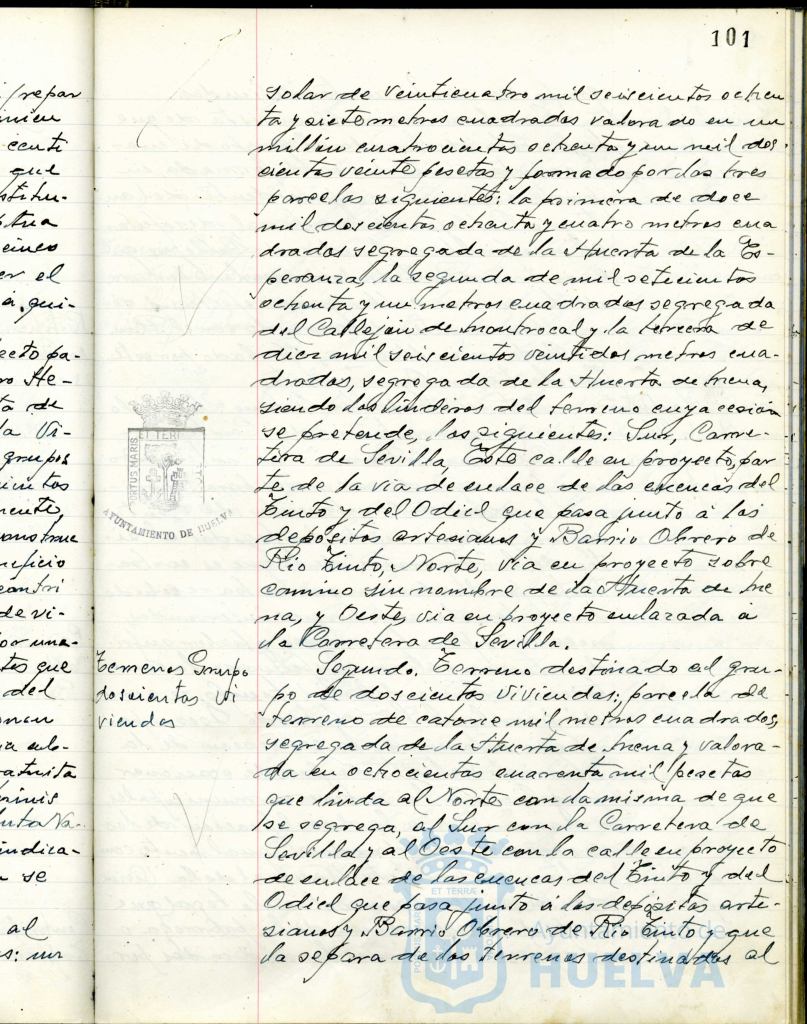 101
solar de veinticuatro mil seiscientos ochen
ta y siete metros cuadrados valorado en un
millón cuatrocientos ochenta y un mil dos
cientas veinte pesetas y formado por las tres
parcelas siguientes: la primera de doce
mil doscientos ochenta y cuatro metros cua
drados segregada de la Huerta de la Es-
peranza, la segunda de mil setecientos
ochenta y un metros cuadrados segregada
del Callejón de Montrocal y la tercera de
diez mil seiscientos veintidos metros cua-
drados, segregada de la Huerta de Mena,
siendo los linderos del terreno cuya cesión
se pretende, los siguientes: Sur, Carre-
tera de Sevilla, Este calle en proyecto, par
te de la via de enlace de las cuencas del
Tinto y del Odiel que pasa junto á los
depósitos artesianos y Barrio Obrero de
Rio Tinto, Norte, via en proyecto sobre
camino sin nombre de la Huerta de Me
na, y Oeste, via en proyecto enlazada á
la Carretera de Sevilla.
Terrenos Grupo
doscientas Vi
viendas
Segundo. Terreno destinado al gru-
po de doscientas viviendas; parcela de
terreno de catorce mil metros cuadrados,
segregada de la Huerta de Mena y valora-
da en ochocientas cuarenta mil pesetas
que linda al Norte con la misma de que
se segrega, al Sur con la Carretera de
Sevilla y al Oeste con la calle en proyecto
de enlace de las cuencas del Tinto y del
Odiel que pasa junto á los depósitos arte-
sianos y Barrio Obrero de Rio Tinto y que
la separa de los terrenos destinados al
PORTUS MARIS
ET TERRAE
AYUNTAMIENTO DE HUELVA
Ayuntamiento de
HUELVA
repar
cuti
que
cinco
er el
á, qui-
ecto pa-
ro He-
ta de
la Vi-
grupos
uneficio
de vi-
por una-
tes que
del
ratuita
indica-
se
al
s: un